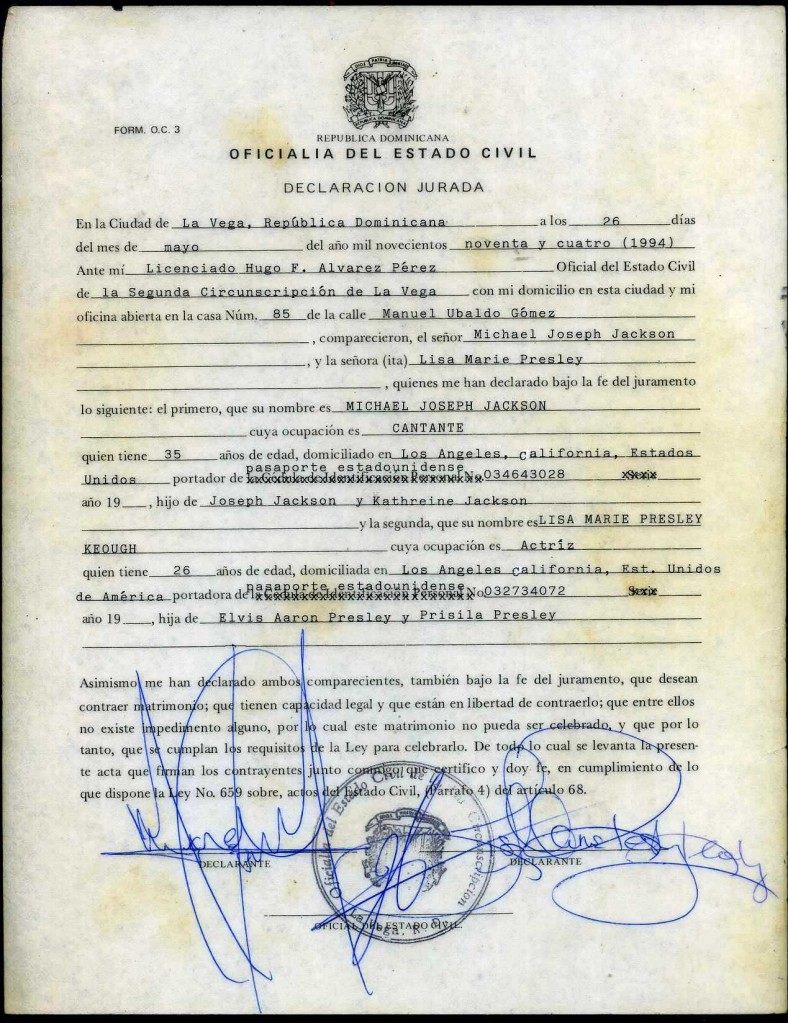 FORM. O.C. 3
REPUBLICA DOMINICANA
OFICIALIA DEL ESTADO CIVIL
DECLARACION JURADA
En la Ciudad de La Vega, República Dominicana a los 26 días
del mes de mayo del año mil novecientos noventa y cuatro (1994)
Ante mí Licenciado Hugo F. Alvarez Pérez Oficial del Estado Civil
de la Segunda Circunscripción de La Vega con mi domicilio en esta ciudad y mi
oficina abierta en la casa Núm. 85 de la calle Manuel Ubaldo Gómez
, comparecieron, el señor Michael Joseph Jackson
, y la señora (ita) Lisa Marie Presley
, quienes me han declarado bajo la fe del juramento
lo siguiente: el primero, que su nombre es MICHAEL JOSEPH JACKSON
cuya ocupación es CANTANTE
quien tiene 35 años de edad, domiciliado en Los Angeles, california, Estados
pasaporte estadounidense
Unidos portador de la Cédula de Identificación Personal No. 034643028 Serie
año 19 , hijo de Joseph Jackson y Kathreine Jackson
y la segunda, que su nombre es LISA MARIE PRESLEY
KEOUGH cuya ocupación es Actríz
quien tiene 26 años de edad, domiciliada en Los Angeles california, Est. Unidos
pasaporte estadounidense
de América portadora de la Cédula de Identificación Personal No. 032734072 Serie
año 19 , hija de Elvis Aaron Presley y Prisila Presley
Asimismo me han declarado ambos comparecientes, también bajo la fe del juramento, que desean
contraer matrimonio; que tienen capacidad legal y que están en libertad de contraerlo; que entre ellos
no existe impedimento alguno, por lo cual este matrimonio no pueda ser celebrado, y que por lo
tanto, que se cumplan los requisitos de la Ley para celebrarlo. De todo lo cual se levanta la presen-
te acta que firman los contrayentes junto conmigo que certifico y doy fe, en cumplimiento de lo
que dispone la Ley No. 659 sobre, actos del Estado Civil, (Párrafo 4) del artículo 68.
DECLARANTE
DECLARANTE
Oficialía del Estado Civil de la Circunscripción
La Vega, R. D.
OFICIAL DEL ESTADO CIVIL.